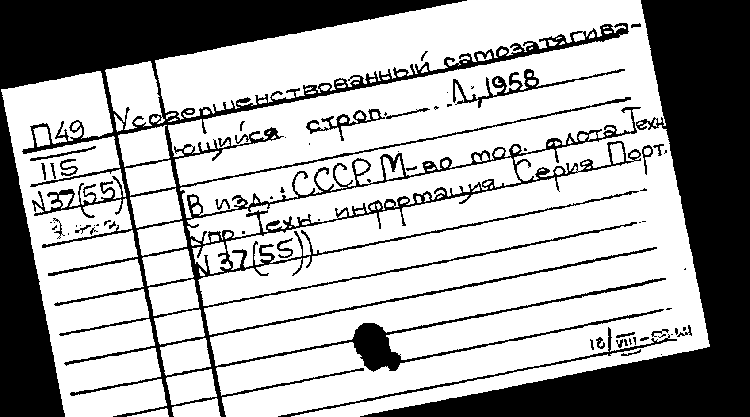 Усовершенствованный самозатягива-
ющийся строп. Л., 1958
П49
115
N37(55)
(В изд.: СССР. М-во мор. флота. Техн.
упр. Техн. информация. Серия Порт.
N 37(55))
18/VIII